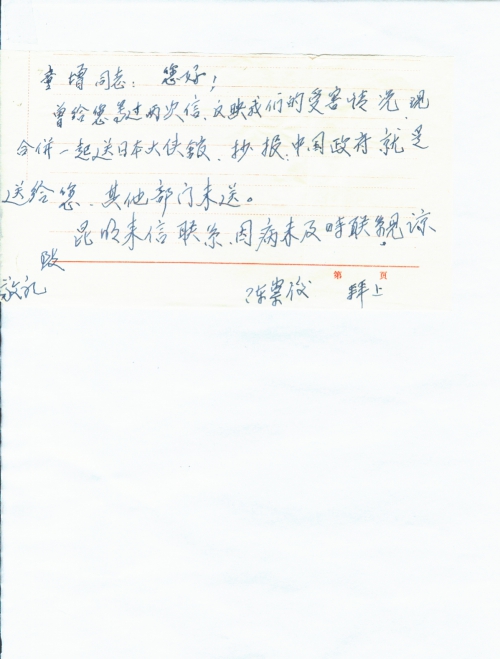 童增同志：您好！
曾给您写过两次信，反映我们的受害情况，现
合併一起送日本大使馆，抄报：中国政府就是
送给您、其他部门未送。
昆明来信联系，因病未及时联系，见谅
致
敬礼
陈崇 拜上
第 页